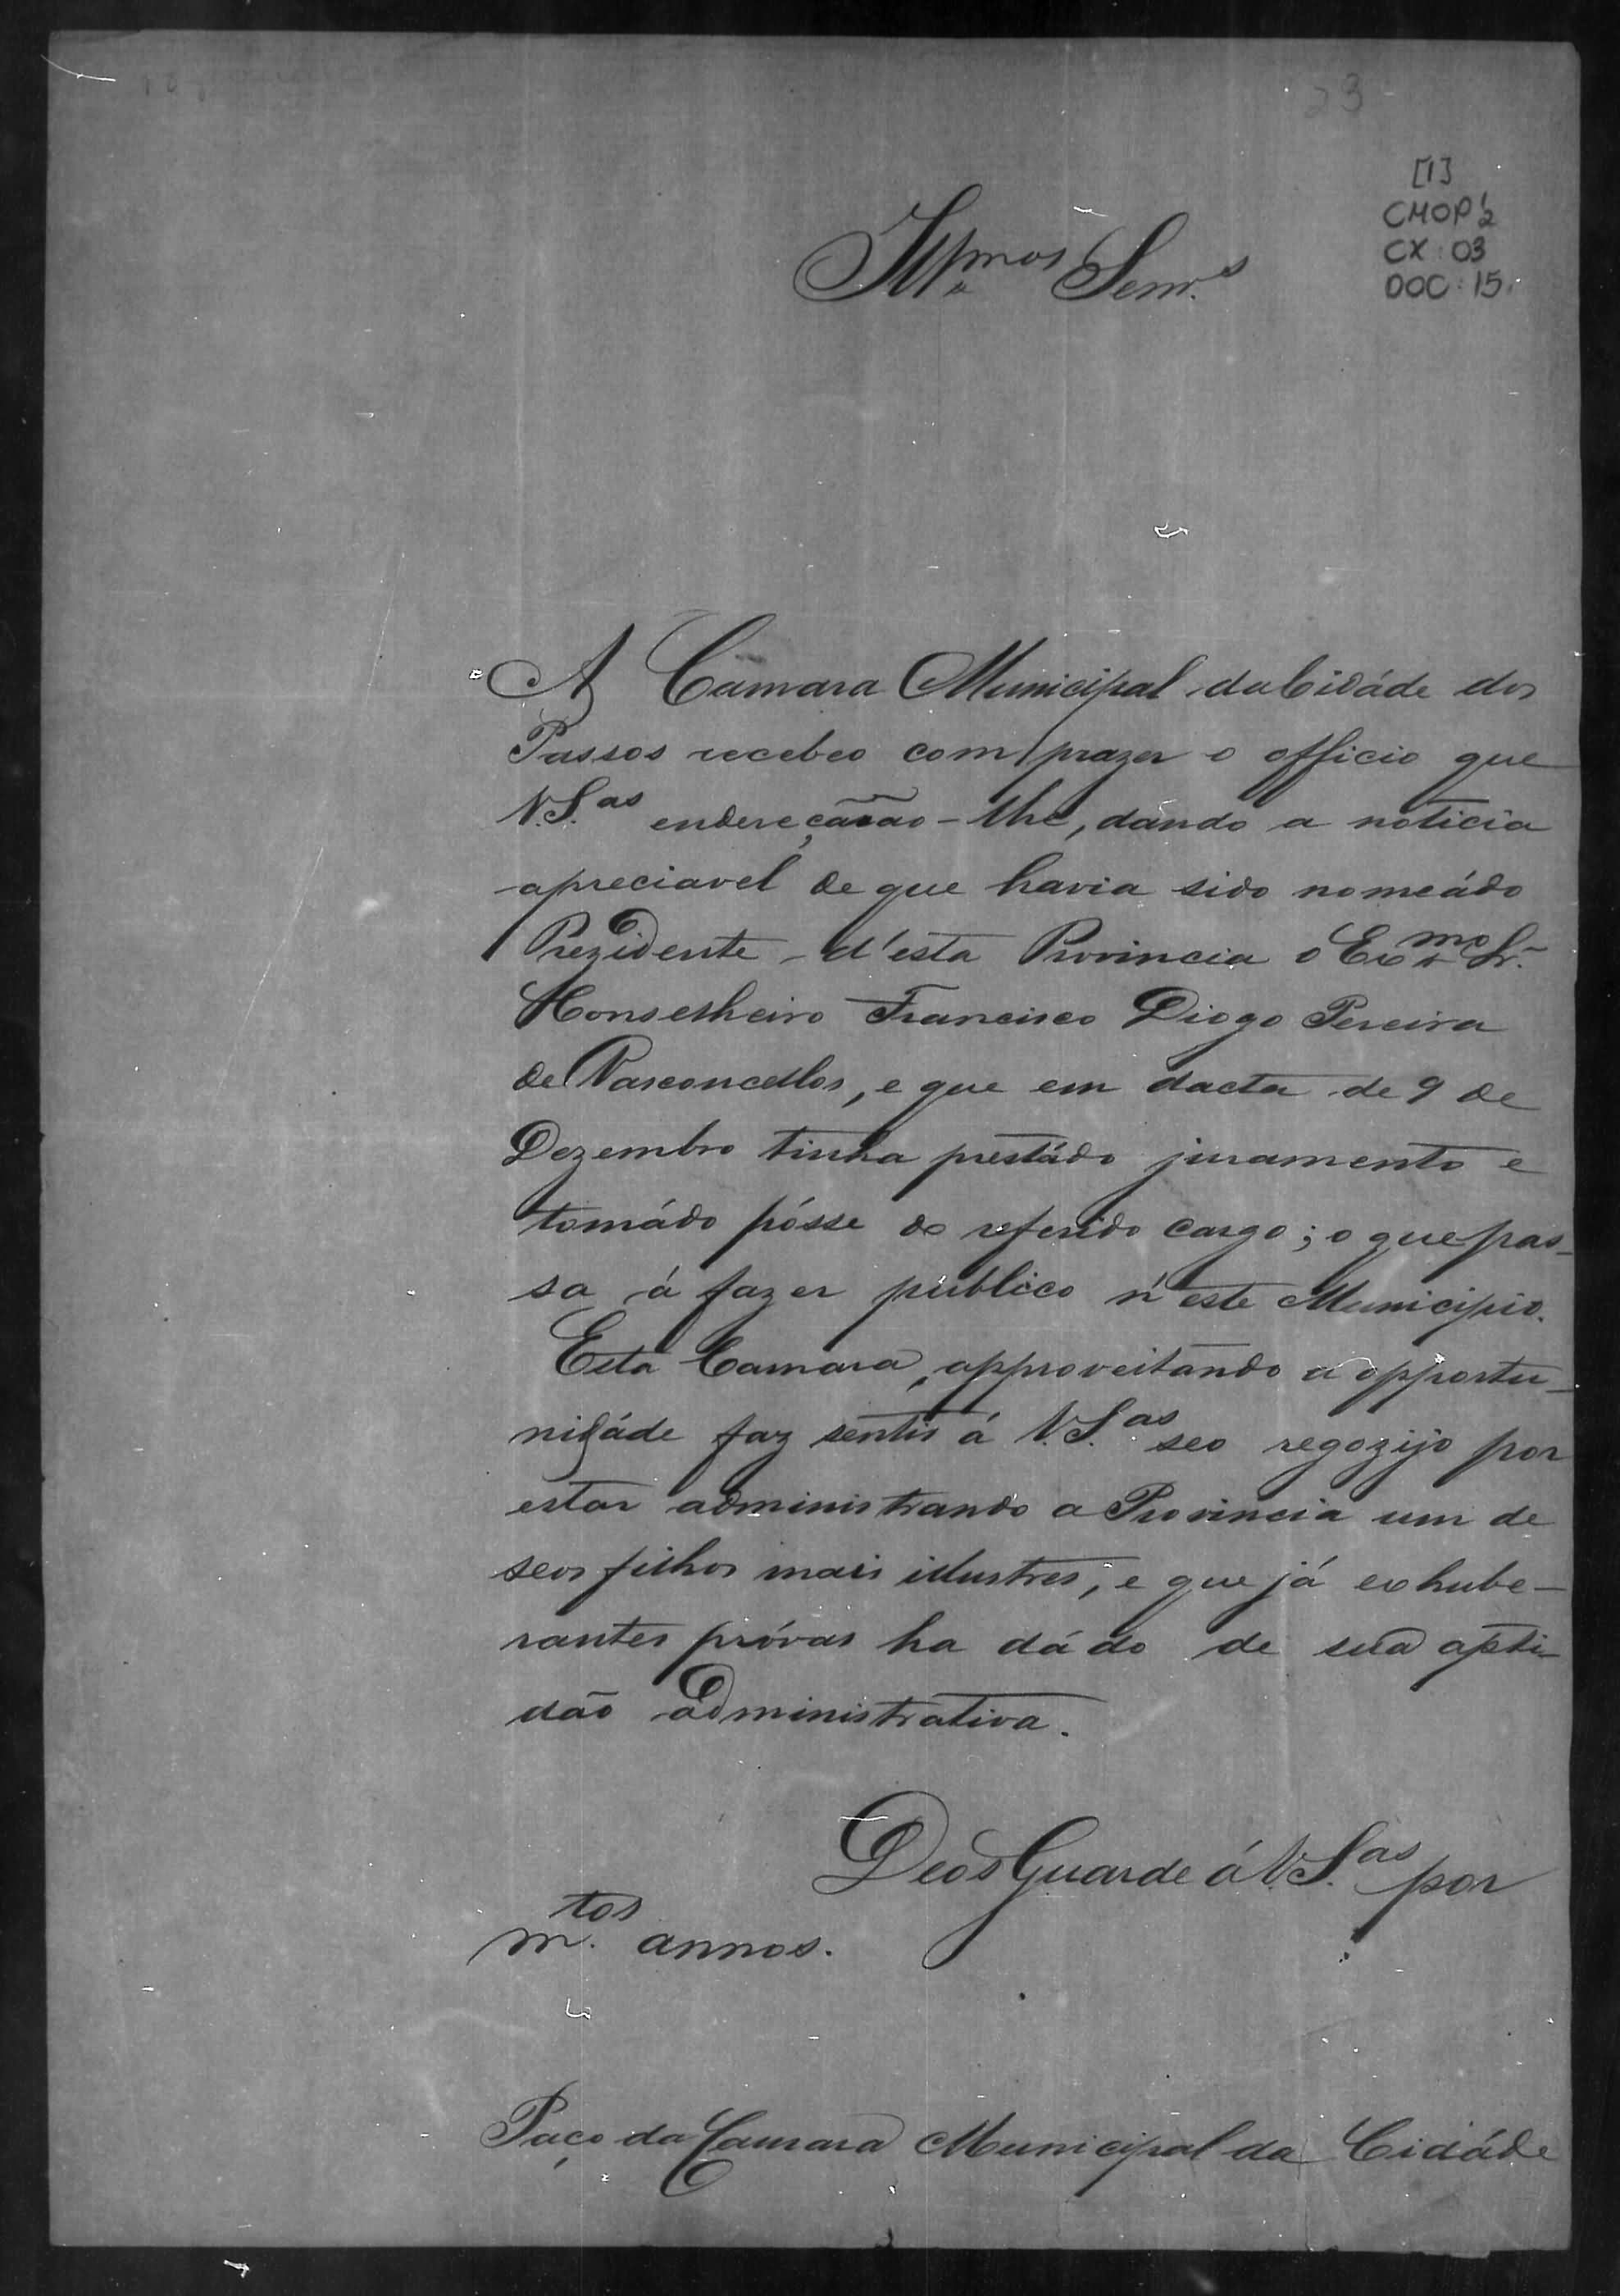 23
[1]
CMOP 1/2
CX: 03
DOC: 15.
Illmos Senrs
A Camara Municipal da Cidáde dos
Passos recebeo com prazer o officio que
V.S.as endereçarão-lhe, dando a noticia
apreciavel de que havia sido nomeádo
Prezidente d'esta Provincia o Exmo Sr.
Conselheiro Francisco Diogo Pereira
de Vasconcellos, e que em dacta de 9 de
Dezembro tinha prestádo juramento e
tomádo pósse do referido cargo; o que pas-
sa á fazer publico n'este Municipio.
Esta Camara, approveitando a opportu-
nidáde faz sentir á V.S.as seo regozijo por
estar administrando a Provincia um de
seos filhos mais illustres, e que já exhube-
rantes próvas ha dádo de sua apti-
dão administrativa.
Deos Guarde á V.S.as por
m.tos annos.
Paço da Camara Municipal da Cidáde